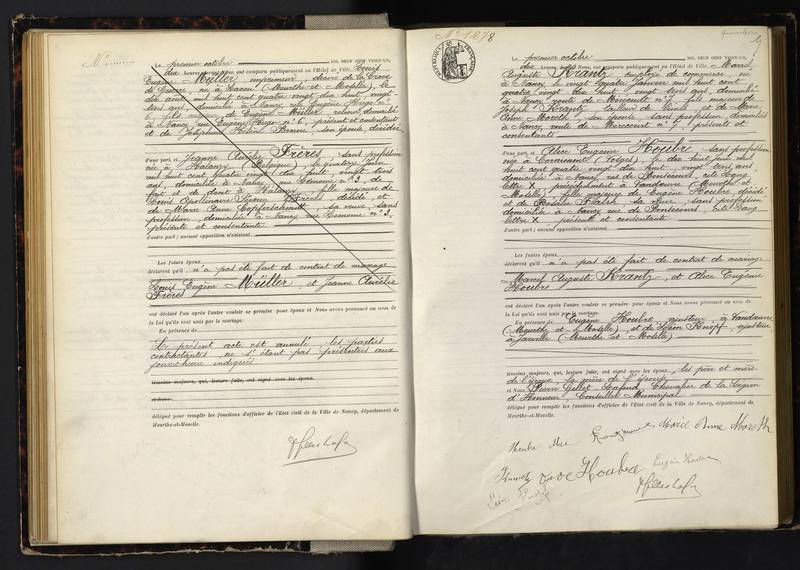 N°
Le premier octobre mil neuf cent vingt-un,
dix heures, devant Nous, ont comparu publiquement en l'Hôtel de Ville, Louis
Eugène Müller, imprimeur, décoré de la Croix
de Guerre, né à Laxou (Meurthe et Moselle), le
dix août mil huit cent quatre vingt dix huit, vingt-
trois ans, domicilié à Nancy, rue Eugène Hugo n°
6, fils majeur de Eugène Müller, domicilié
à Nancy, rue Eugène Hugo n° 6, présent et consentant
et de Joséphine Hélène, son épouse, décédée
d'une part, et Jeanne Aurélie Frères, sans profession
née à Halanzy (Belgique), le quatorze
mil huit cent quatre vingt dix huit, vingt trois
ans, domiciliée à Nancy, rue Lemoine n° 3, de
fait et de droit à Halanzy, fille majeure de
Louis Apollinaire Frères, décédé, et
de Marie, sa veuve, sans
profession, domiciliée à Nancy, rue Lemoine n° 3,
présente et consentante
d'autre part; aucune opposition n'existant.
Les futurs époux
déclarent qu'il n'a pas été fait de contrat de mariage
Louis Eugène Müller, et Jeanne Aurélie
Frères
ont déclaré l'un après l'autre vouloir se prendre pour époux et Nous avons prononcé au nom de
la Loi qu'ils sont unis par le mariage.
En présence de
Le présent acte est annulé, les parties
contractantes, ne s'étant pas présentées aux
jour et heure indiqués
témoins majeurs, qui, lecture faite, ont signé avec les époux
délégué pour remplir les fonctions d'officier de l'Etat civil de la Ville de Nancy, département de
Meurthe-et-Moselle.
N° 1078
REPUBLIQUE FRANÇAISE
Le premier octobre mil neuf cent vingt-un,
dix heures, devant Nous, ont comparu publiquement en l'Hôtel de Ville, Marcel
Auguste Krantz, employé de commerce, né
à Nancy, le vingt quatre janvier mil huit cent
quatre vingt dix huit, vingt trois ans, domicilié
à Nancy, route de Mirecourt n° 7, fils majeur de
Joseph Krantz, tailleur de, et de Marie
Anne Moreth, son épouse, sans profession, domiciliés
à Nancy, route de Mirecourt n° 7, présents et
consentants
d'une part, et Alice Eugénie Houbre, sans profession
née à Cornimont (Vosges), le dix huit juin mil
huit cent quatre vingt dix huit, vingt trois ans,
domiciliée à Nancy, rue de Bonsecours, cité Lang
lettre X, précédemment à Vandœuvre (Meurthe et
Moselle), fille majeure de Eugène Houbre, décédé
et de Rosalie, sa veuve, sans profession
domiciliée à Nancy, rue de Bonsecours, cité Lang
lettre X, présente et consentante
d'autre part; aucune opposition n'existant.
Les futurs époux
déclarent qu'il n'a pas été fait de contrat de mariage
Marcel Auguste Krantz, et Alice Eugénie
Houbre
ont déclaré l'un après l'autre vouloir se prendre pour époux et Nous avons prononcé au nom de
la Loi qu'ils sont unis par le mariage.
En présence de Eugène Houbre, ajusteur, à Vandœuvre
(Meurthe et Moselle), et de Léon Knopf, ajusteur,
à Jarville (Meurthe et Moselle)
témoins majeurs, qui, lecture faite, ont signé avec les époux, les père et mère
de l'époux, la mère de l'épouse
et Nous, Pierre, Chevalier de la Légion
d'Honneur, Conseiller Municipal
délégué pour remplir les fonctions d'officier de l'Etat civil de la Ville de Nancy, département de
Meurthe-et-Moselle.
Houbre Alice Marie Anne Moreth
Krantz Houbre Eugène Houbre
Léon